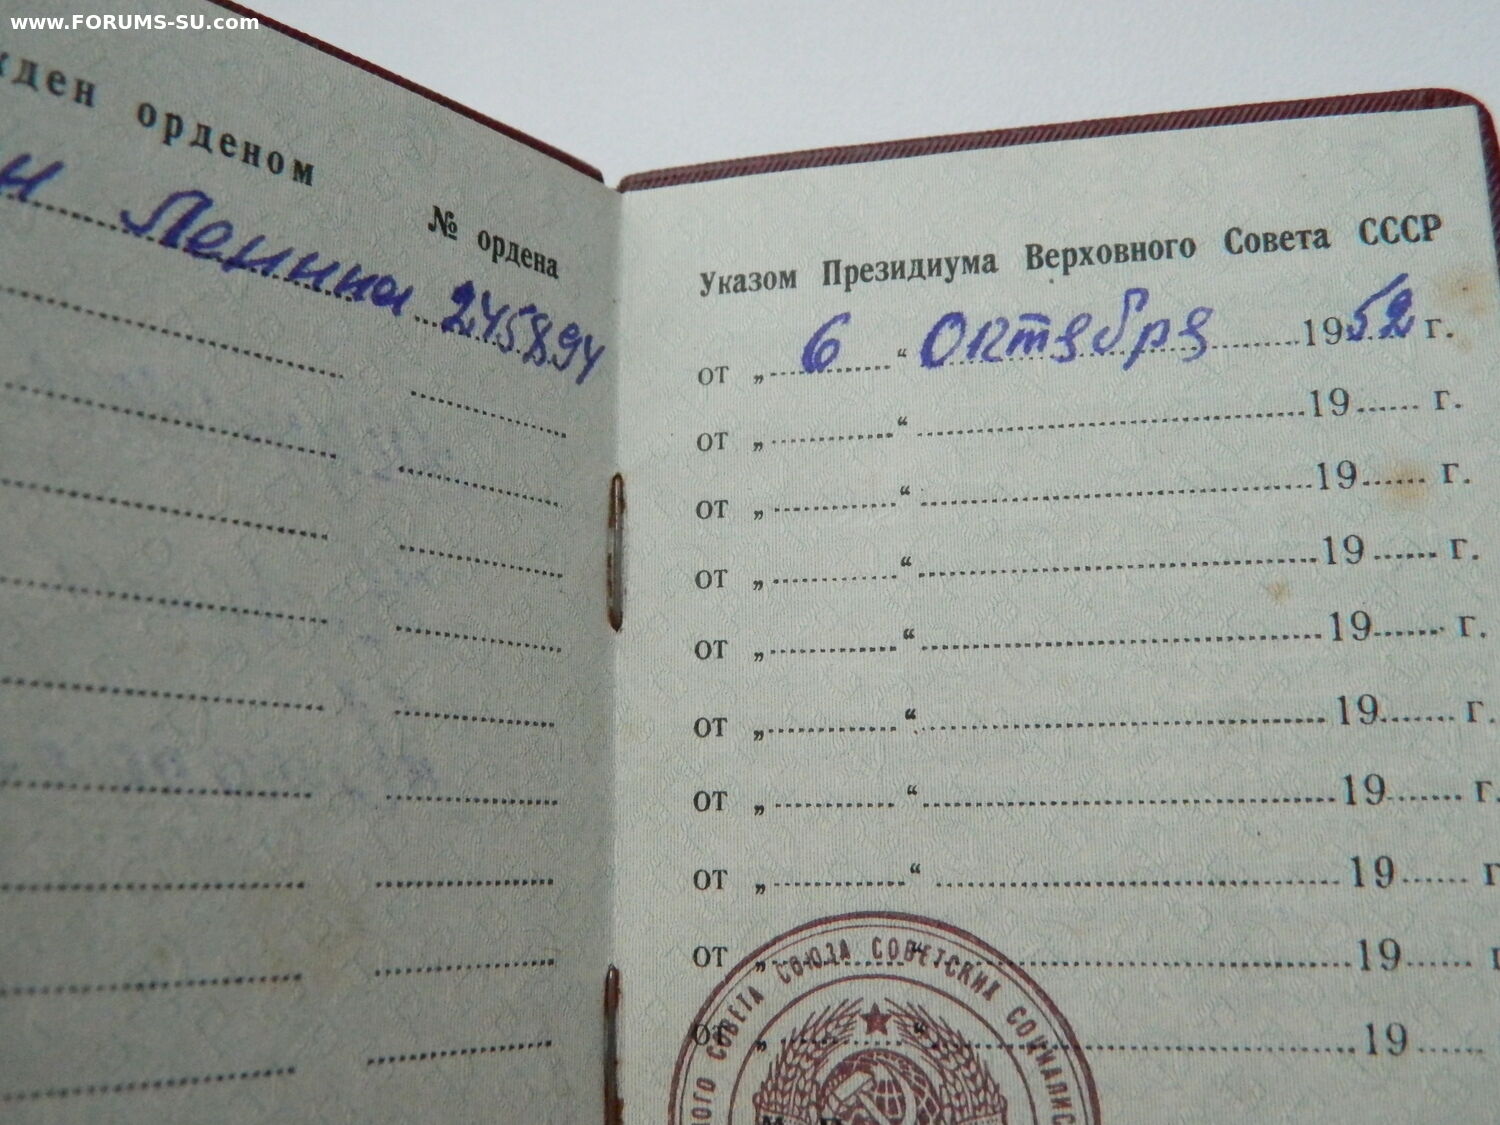 www.FORUMS-SU.com
жден орденом
№ ордена
н Ленина 245894
Указом Президиума Верховного Совета СССР
от „ 6 “ Октября 1952 г.
от „ “ 19 г.
от „ “ 19 г.
от „ “ 19 г.
от „ “ 19 г.
от „ “ 19 г.
от „ “ 19 г.
от „ “ 19 г.
от „ “ 19 г
от „ “ 19
НОГО СОВЕТА СОЮЗА СОВЕТСКИХ СОЦИАЛИС